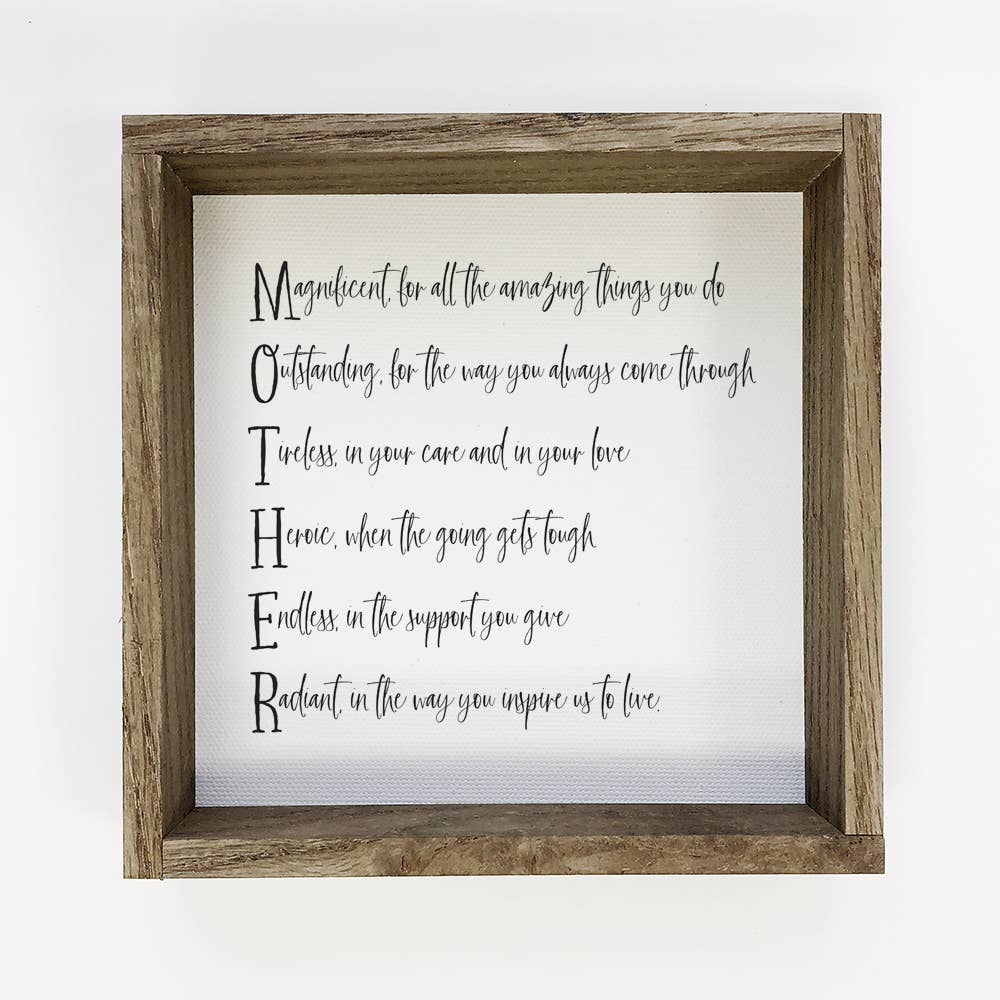 Magnificent, for all the amazing things you do
Outstanding, for the way you always come through
Tireless, in your care and in your love
Heroic, when the going gets tough
Endless, in the support you give
Radiant, in the way you inspire us to live.